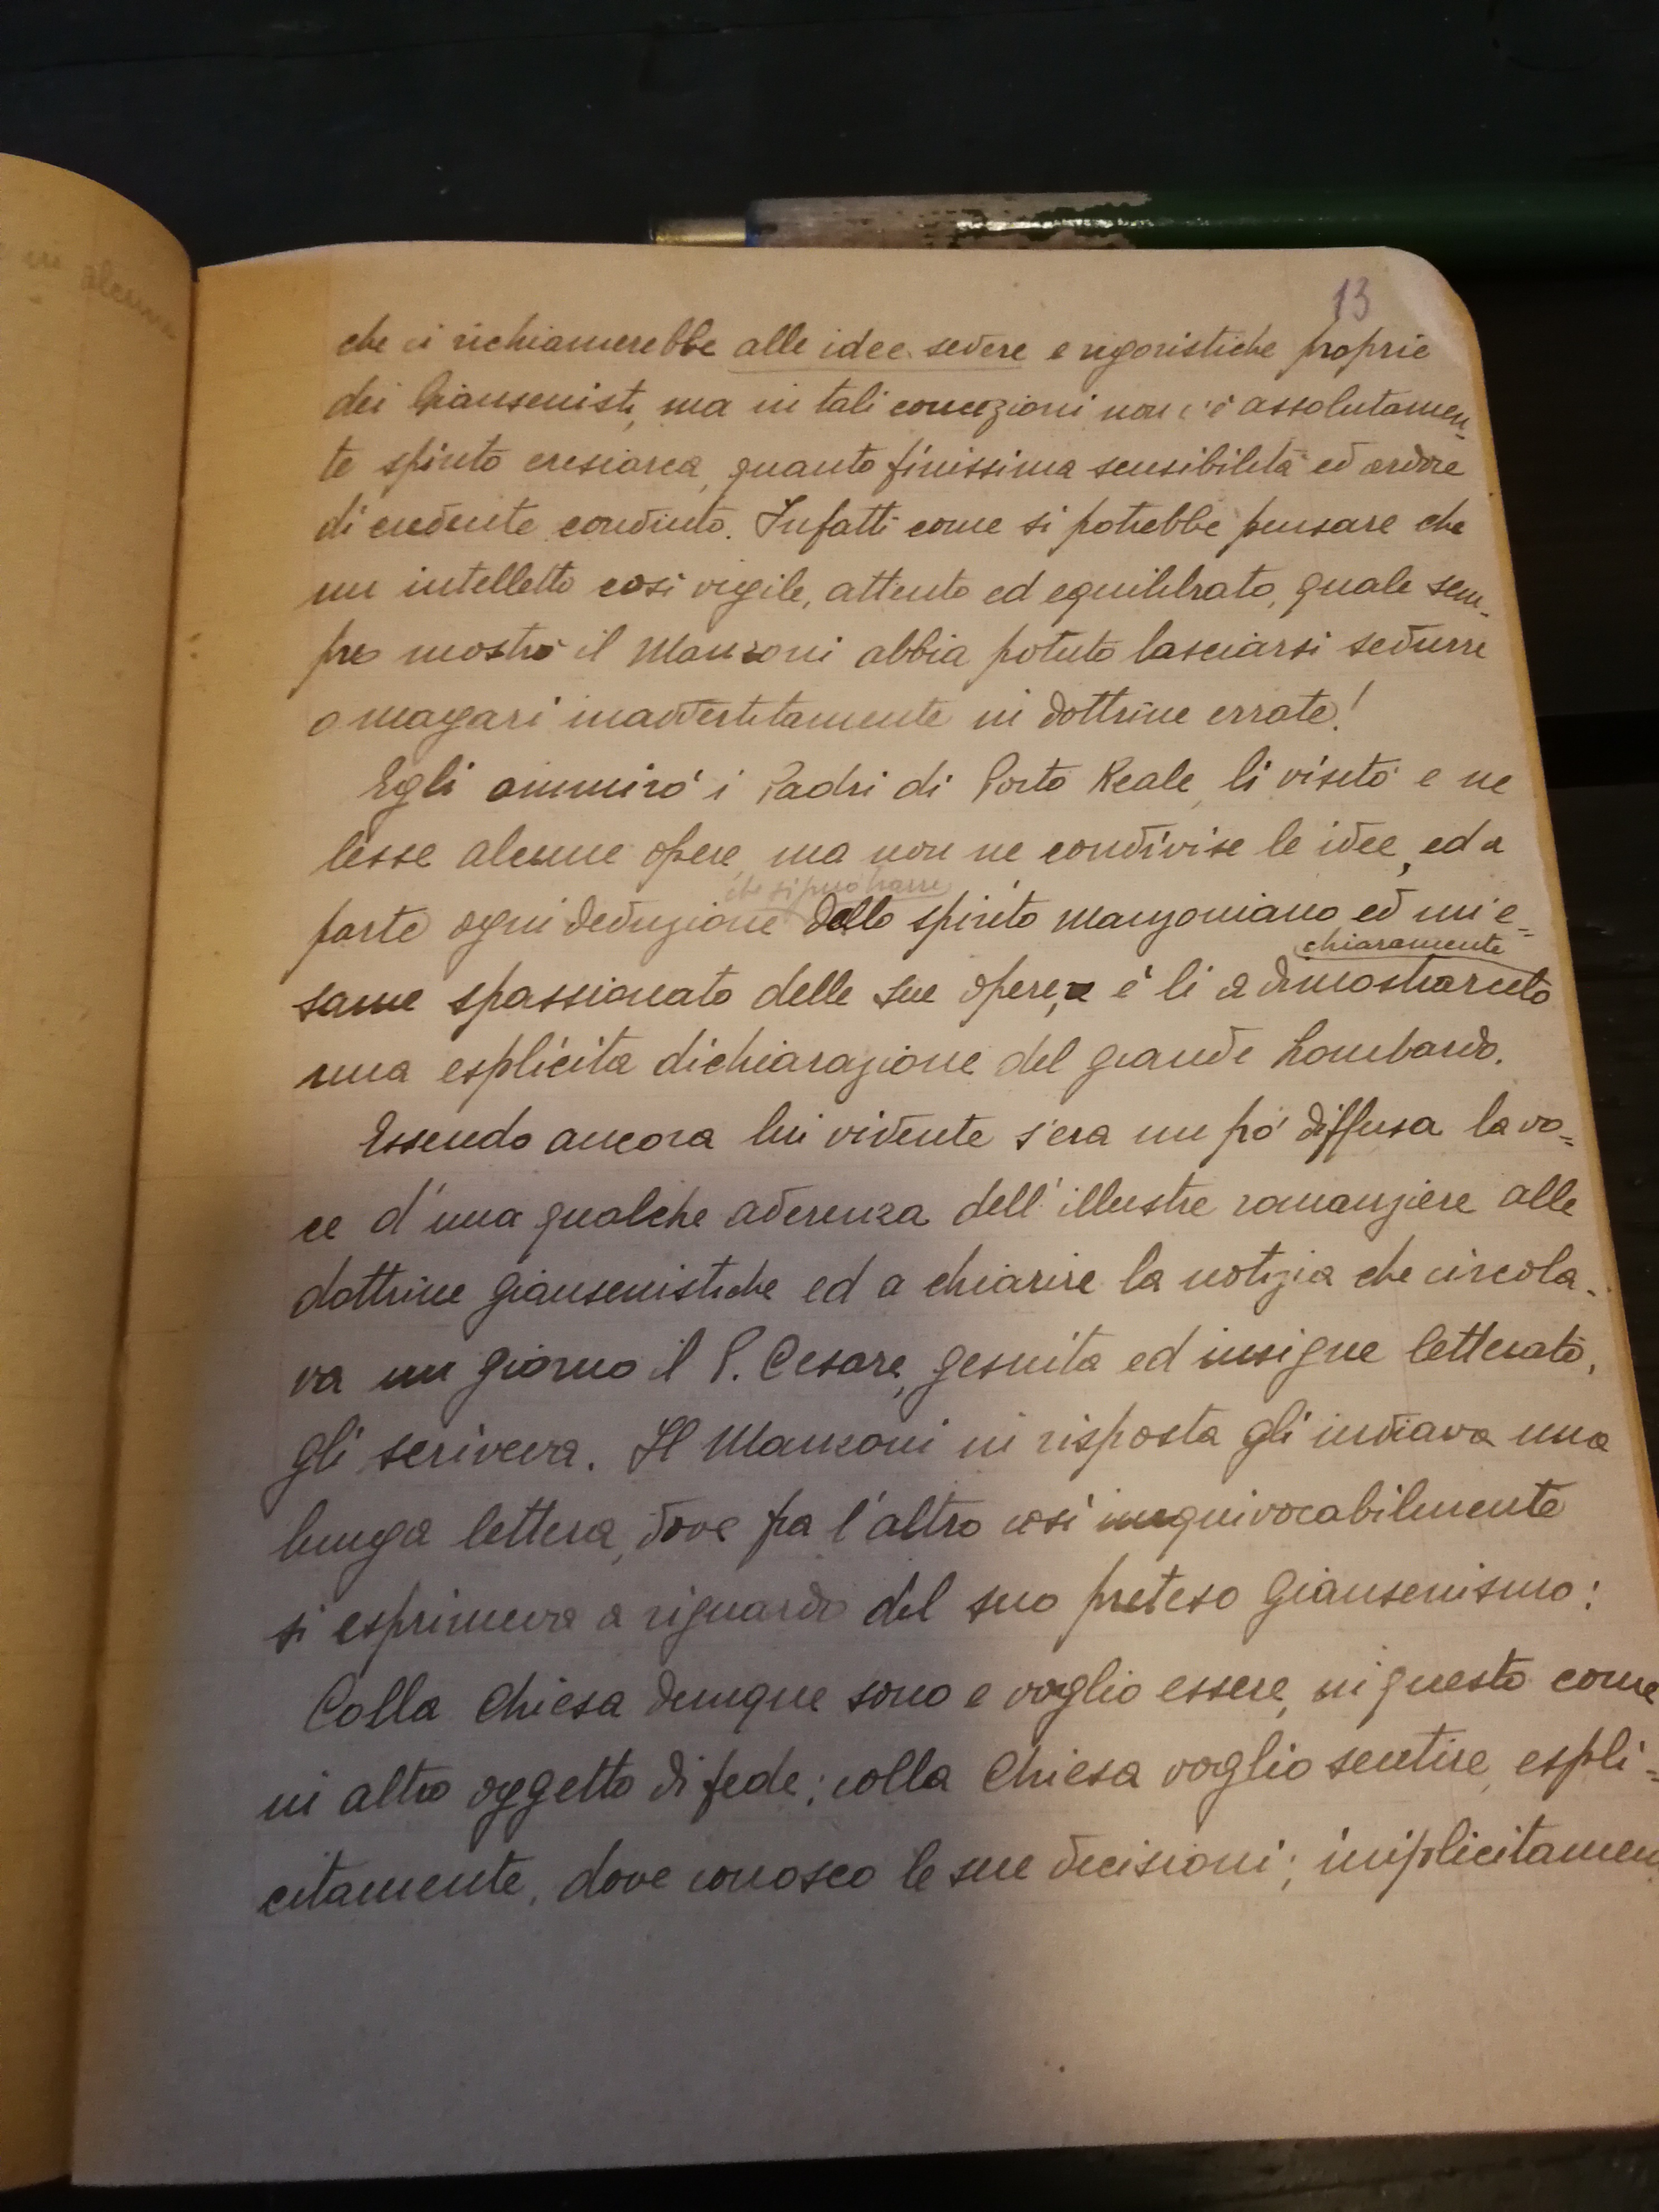 13
che ci richiamerebbe alle idee severe e rigoristiche proprie
dei Giansenisti, ma in tali concezioni non c'è assolutamen-
te spirito eresiarca, quanto finissima sensibilità ed ardore
di credente convinto. Infatti come si potrebbe pensare che
un intelletto così vigile, attento ed equilibrato, quale sem-
pre mostrò il Manzoni abbia potuto lasciarsi sedurre
o magari inavvertitamente in dottrine errate!
Egli ammirò i Padri di Porto Reale, li visitò e ne
lesse alcune opere, ma non ne condivise le idee, ed a
che si può trarre
parte ogni deduzione dello spirito manzoniano ed un e=
chiaramente
same spassionato delle sue opere, è lì a dimostrarcelo
una esplicita dichiarazione del grande Lombardo.
Essendo ancora lui vivente s'era un pò diffusa la vo=
ce d'una qualche aderenza dell'illustre romanziere alle
dottrine giansenistiche ed a chiarire la notizia che circola-
va un giorno il P. Cesare, gesuita ed insigne letterato,
gli scriveva. Il Manzoni in risposta gli inviava una
lunga lettera, dove fra l'altro così inequivocabilmente
si esprimeva a riguardo del suo preteso Giansenismo:
Colla Chiesa dunque sono e voglio essere, in questo come
in altro oggetto di fede; colla Chiesa voglio sentire, espli=
citamente, dove conosco le sue decisioni; implicitamen